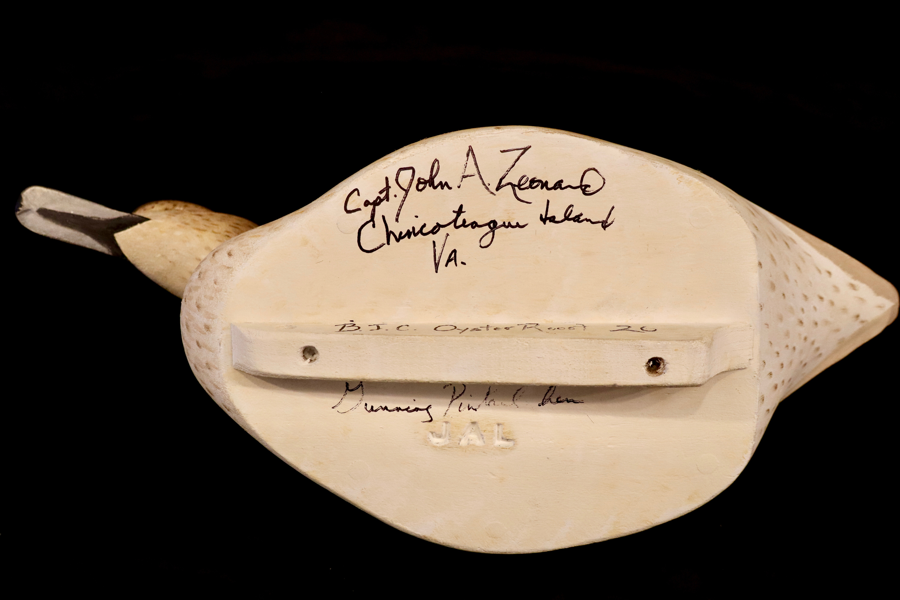 Capt. John A Leonard
Chincoteague Island
VA.
B J. C. Oyster Roost 20
Gunning Pintail hen
JAL